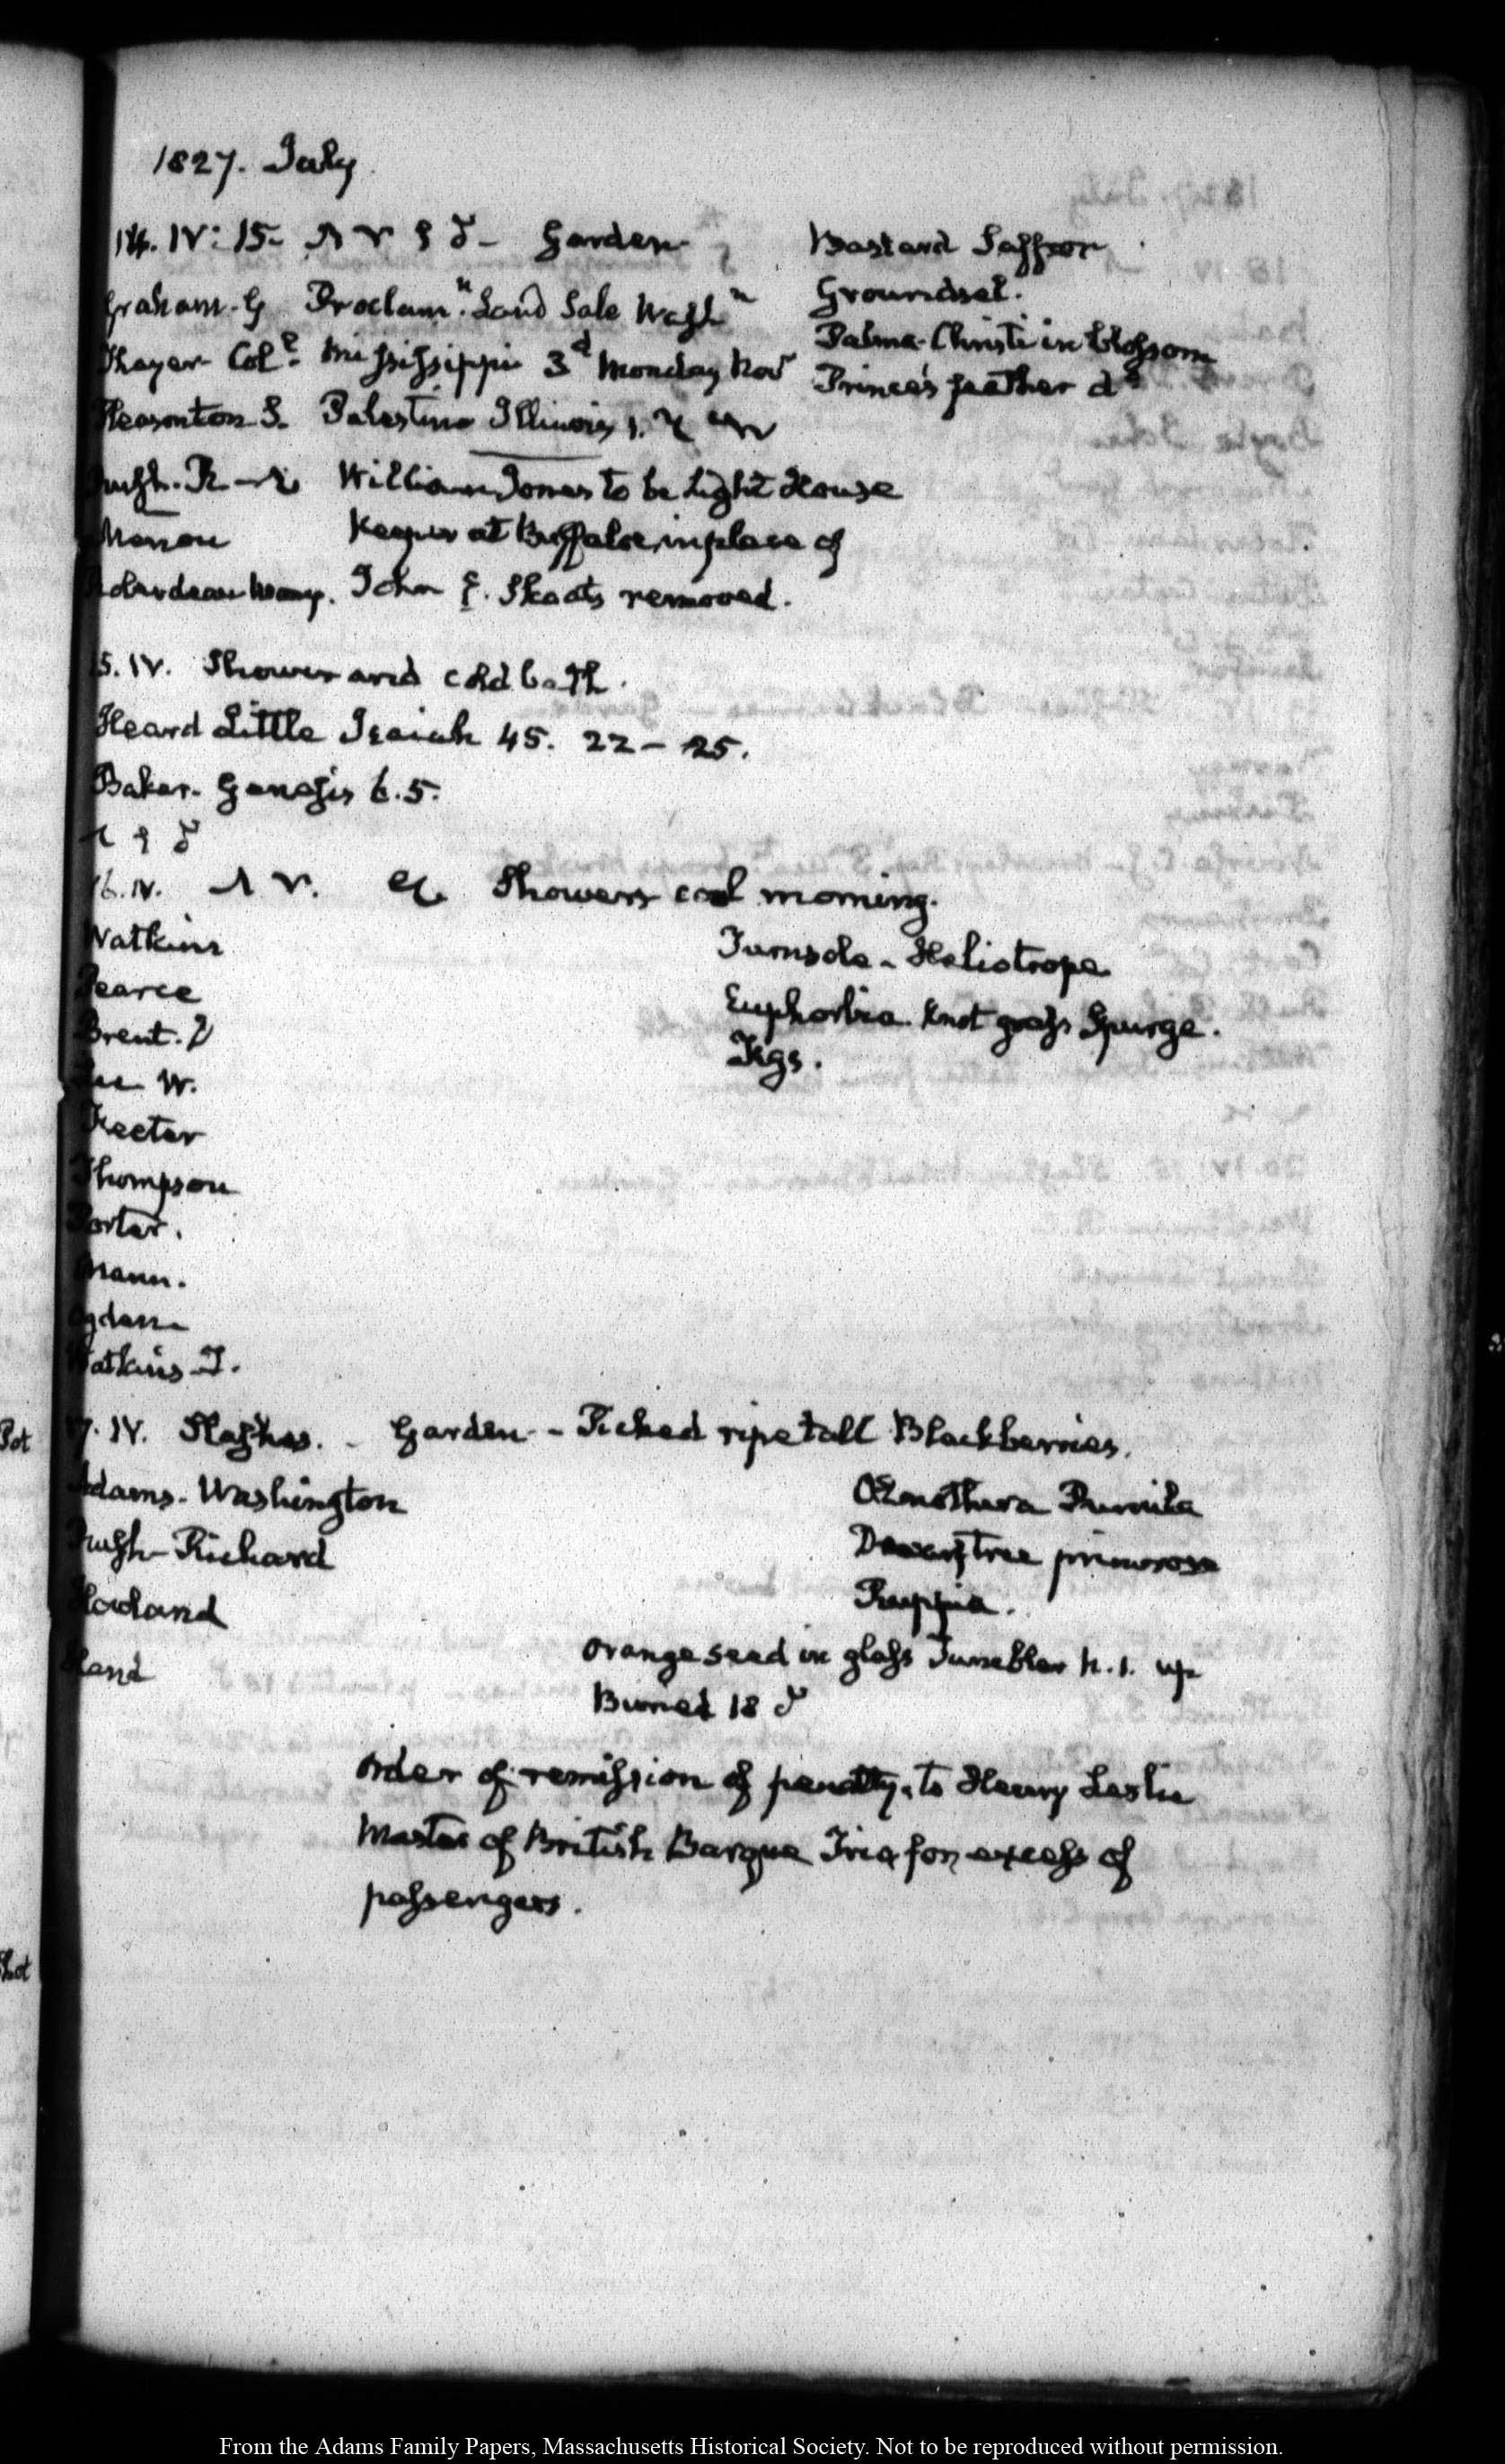 1827. July
14. IV: 15. Garden
Bastard Saffron
Graham. G Proclamn. Land Sale Washn
Groundsel.
Thayer Col. Mississippi 3d Monday Novr
Palma-Christi in blossom
Prince's feather do
Pleasonton S. Palestine Illinois
Rush. R William Jones to be Light House
Menou Keeper at Buffaloe, in place of
John E. Skaats removed.
15. IV. Shower and cold bath.
Heard Little Isaiah 45. 22 – 25.
Baker. Genesis 6.5.
16. IV. Showers cool morning.
Watkins
Turnsole – Heliotrope
Pearce
Euphorbia. Knot grass Spurge.
Brent.
Figs.
Lee W.
Rector
Thompson
Porter.
Mann.
Ogden
Watkins T.
17. IV. Slashes. – Garden – Picked ripe tall Blackberries.
Adams. Washington
Oenothera Pumila
Rush Richard
Dwarf tree primrose
Howland
Ruppia.
Hand
Orange seed in glass Tumbler N. 1. up
Buried 18
Order of remission of penalty, to Henry Leslie
Master of British Barque for excess of
passengers.
Pot
From the Adams Family Papers, Massachusetts Historical Society. Not to be reproduced without permission.